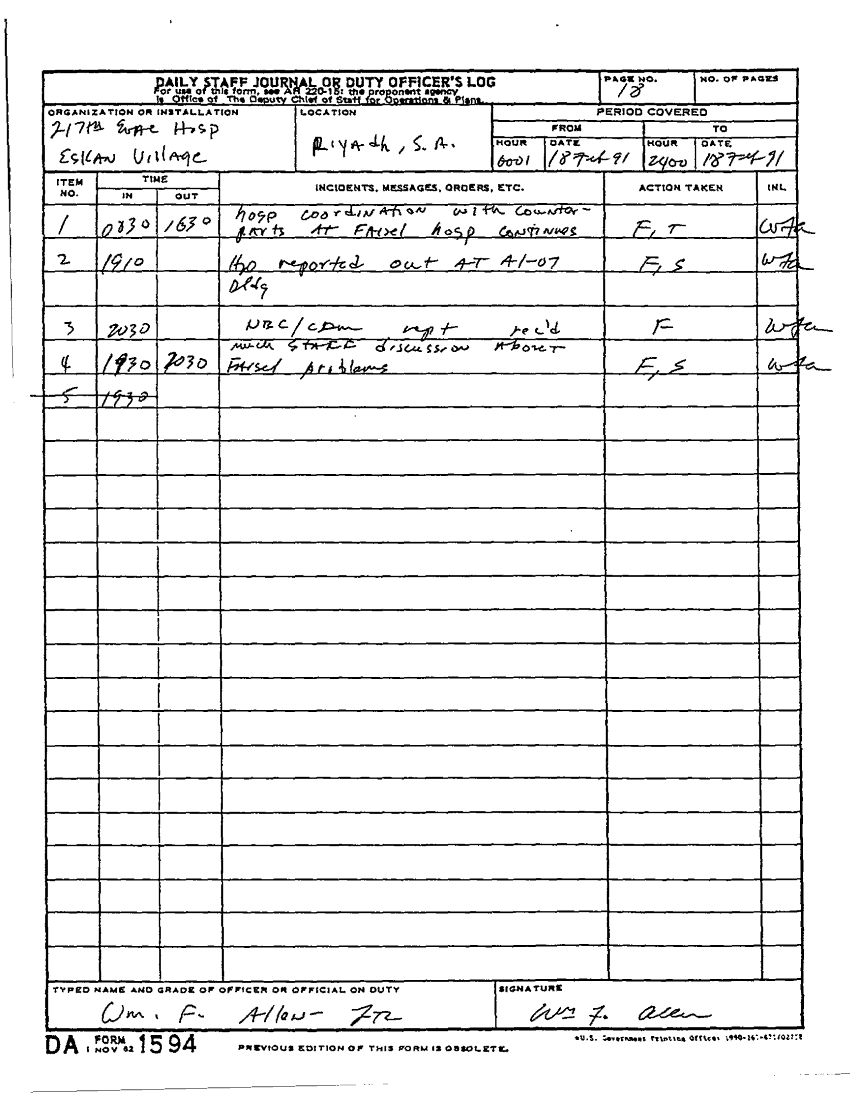 DAILY STAFF JOURNAL OR DUTY OFFICER'S LOG
For use of this form, see AR 220-15; the proponent agency
is Office of The Deputy Chief of Staff for Operations & Plans.
PAGE NO.
18
NO. OF PAGES
ORGANIZATION OR INSTALLATION
217th Evac Hosp
ESKAN Village
LOCATION
Riyadh, S.A.
PERIOD COVERED
FROM
TO
HOUR
0001
DATE
18 Feb 91
HOUR
2400
DATE
18 Feb 91
ITEM NO.
TIME
IN
OUT
INCIDENTS, MESSAGES, ORDERS, ETC.
ACTION TAKEN
INL
1 0830 1630 hosp coordination with counter-
parts AT FAisel hosp continues F, T wfa
2 1910 H2O reported out AT A1-07 F, S wfa
Bldg
3 2030 NBC/CDM rept rec'd F wfa
4 1930 2030 much STAFF discussion About
FAisel problems F, S wfa
5 1930
TYPED NAME AND GRADE OF OFFICER OR OFFICIAL ON DUTY
Wm. F. Allen
SIGNATURE
Wm F. Allen
DA FORM 1 NOV 62 1594
PREVIOUS EDITION OF THIS FORM IS OBSOLETE.
U.S. Government Printing Office: 1990